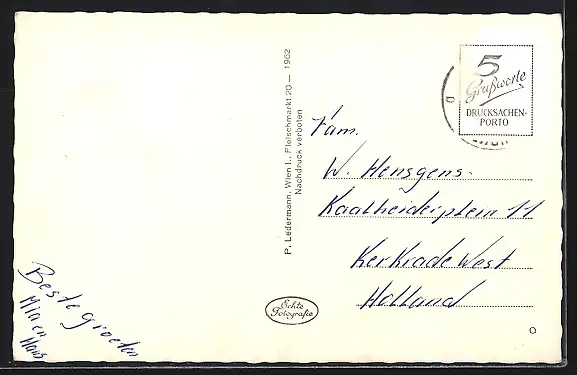 5
Grußworte
DRUCKSACHEN-
PORTO
P. Ledermann, Wien I., Fleischmarkt 20 — 1962
Nachdruck verboten
Fam.
W. Hensgens.
Kaalheiderplein 11
Kerkrade West
Holland
Echte
Fotografie
Beste groeten
Mia en
Hans
O